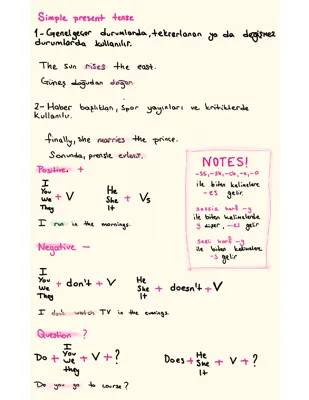 Simple present tense
1- Genelgeçer durumlarda, tekrarlanan ya da değişmez
durumlarda kullanılır.
The sun rises the east.
Güneş doğudan doğar.
2- Haber başlıkları, spor yayınları ve kritiklerde
kullanılır.
finally, she marries the prince.
Sonunda, prensle evlenir.
Positive: +
I
You
We
They
+ V
He
She
It
+ Vs
I run in the mornings.
NOTES!
-ss, -sh, -ch, -x, -o
ile biten kelimelere
-es gelir.
sessiz harf -y
ile biten kelimelerde
y düşer, -ies gelir
sesli harf -y
ile biten kelimelere
-s gelir
Negative -
I
You
We
They
+ don't + V
He
She
It
+ doesn't + V
I don't watch TV in the evenings.
Question ?
Do + I
You
We
they
+ V + ?
Does + He
She
It
+ V + ?
Do you go to course?